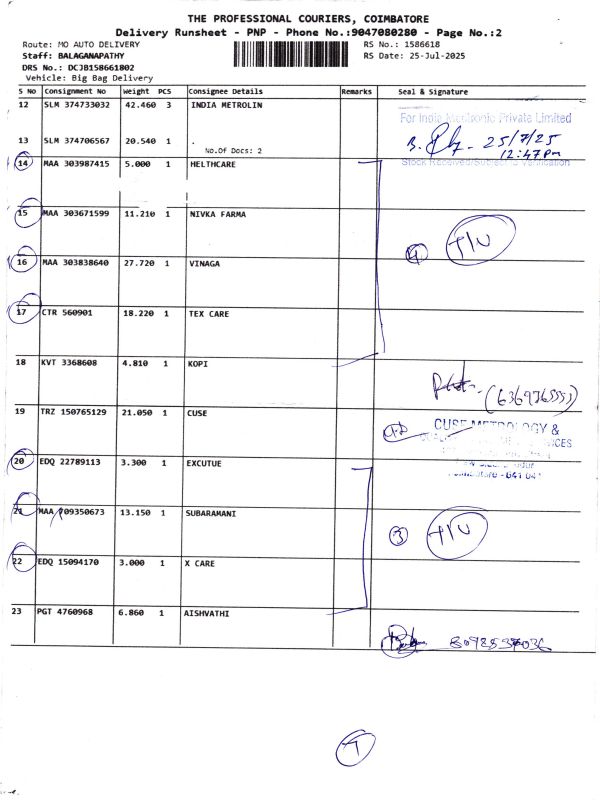 THE PROFESSIONAL COURIERS, COIMBATORE
Delivery Runsheet - PNP - Phone No.:9047080280 - Page No.:2
Route: MO AUTO DELIVERY
RS No.: 1586618
Staff: BALAGANAPATHY
RS Date: 25-Jul-2025
DRS No.: DCJB158661802
Vehicle: Big Bag Delivery
S No Consignment No Weight PCS Consignee Details Remarks Seal & Signature
12 SLM 374733032 42.460 3 INDIA METROLIN
For India Metronic Private Limited
13 SLM 374706567 20.540 1 .
25/7/25
No.Of Docs: 2
12:47 pm
Stock Received/Subject to Verification
14 MAA 303987415 5.000 1 HELTHCARE
15 MAA 303671599 11.210 1 NIVKA FARMA
4
T/U
16 MAA 303838640 27.720 1 VINAGA
17 CTR 560901 18.220 1 TEX CARE
18 KVT 3368608 4.810 1 KOPI
19 TRZ 150765129 21.050 1 CUSE
CUSE METROLOGY &
20 EDQ 22789113 3.300 1 EXCUTUE
21 MAA 709350673 13.150 1 SUBARAMANI
3
T/U
22 EDQ 15094170 3.000 1 X CARE
23 PGT 4760968 6.860 1 AISHVATHI